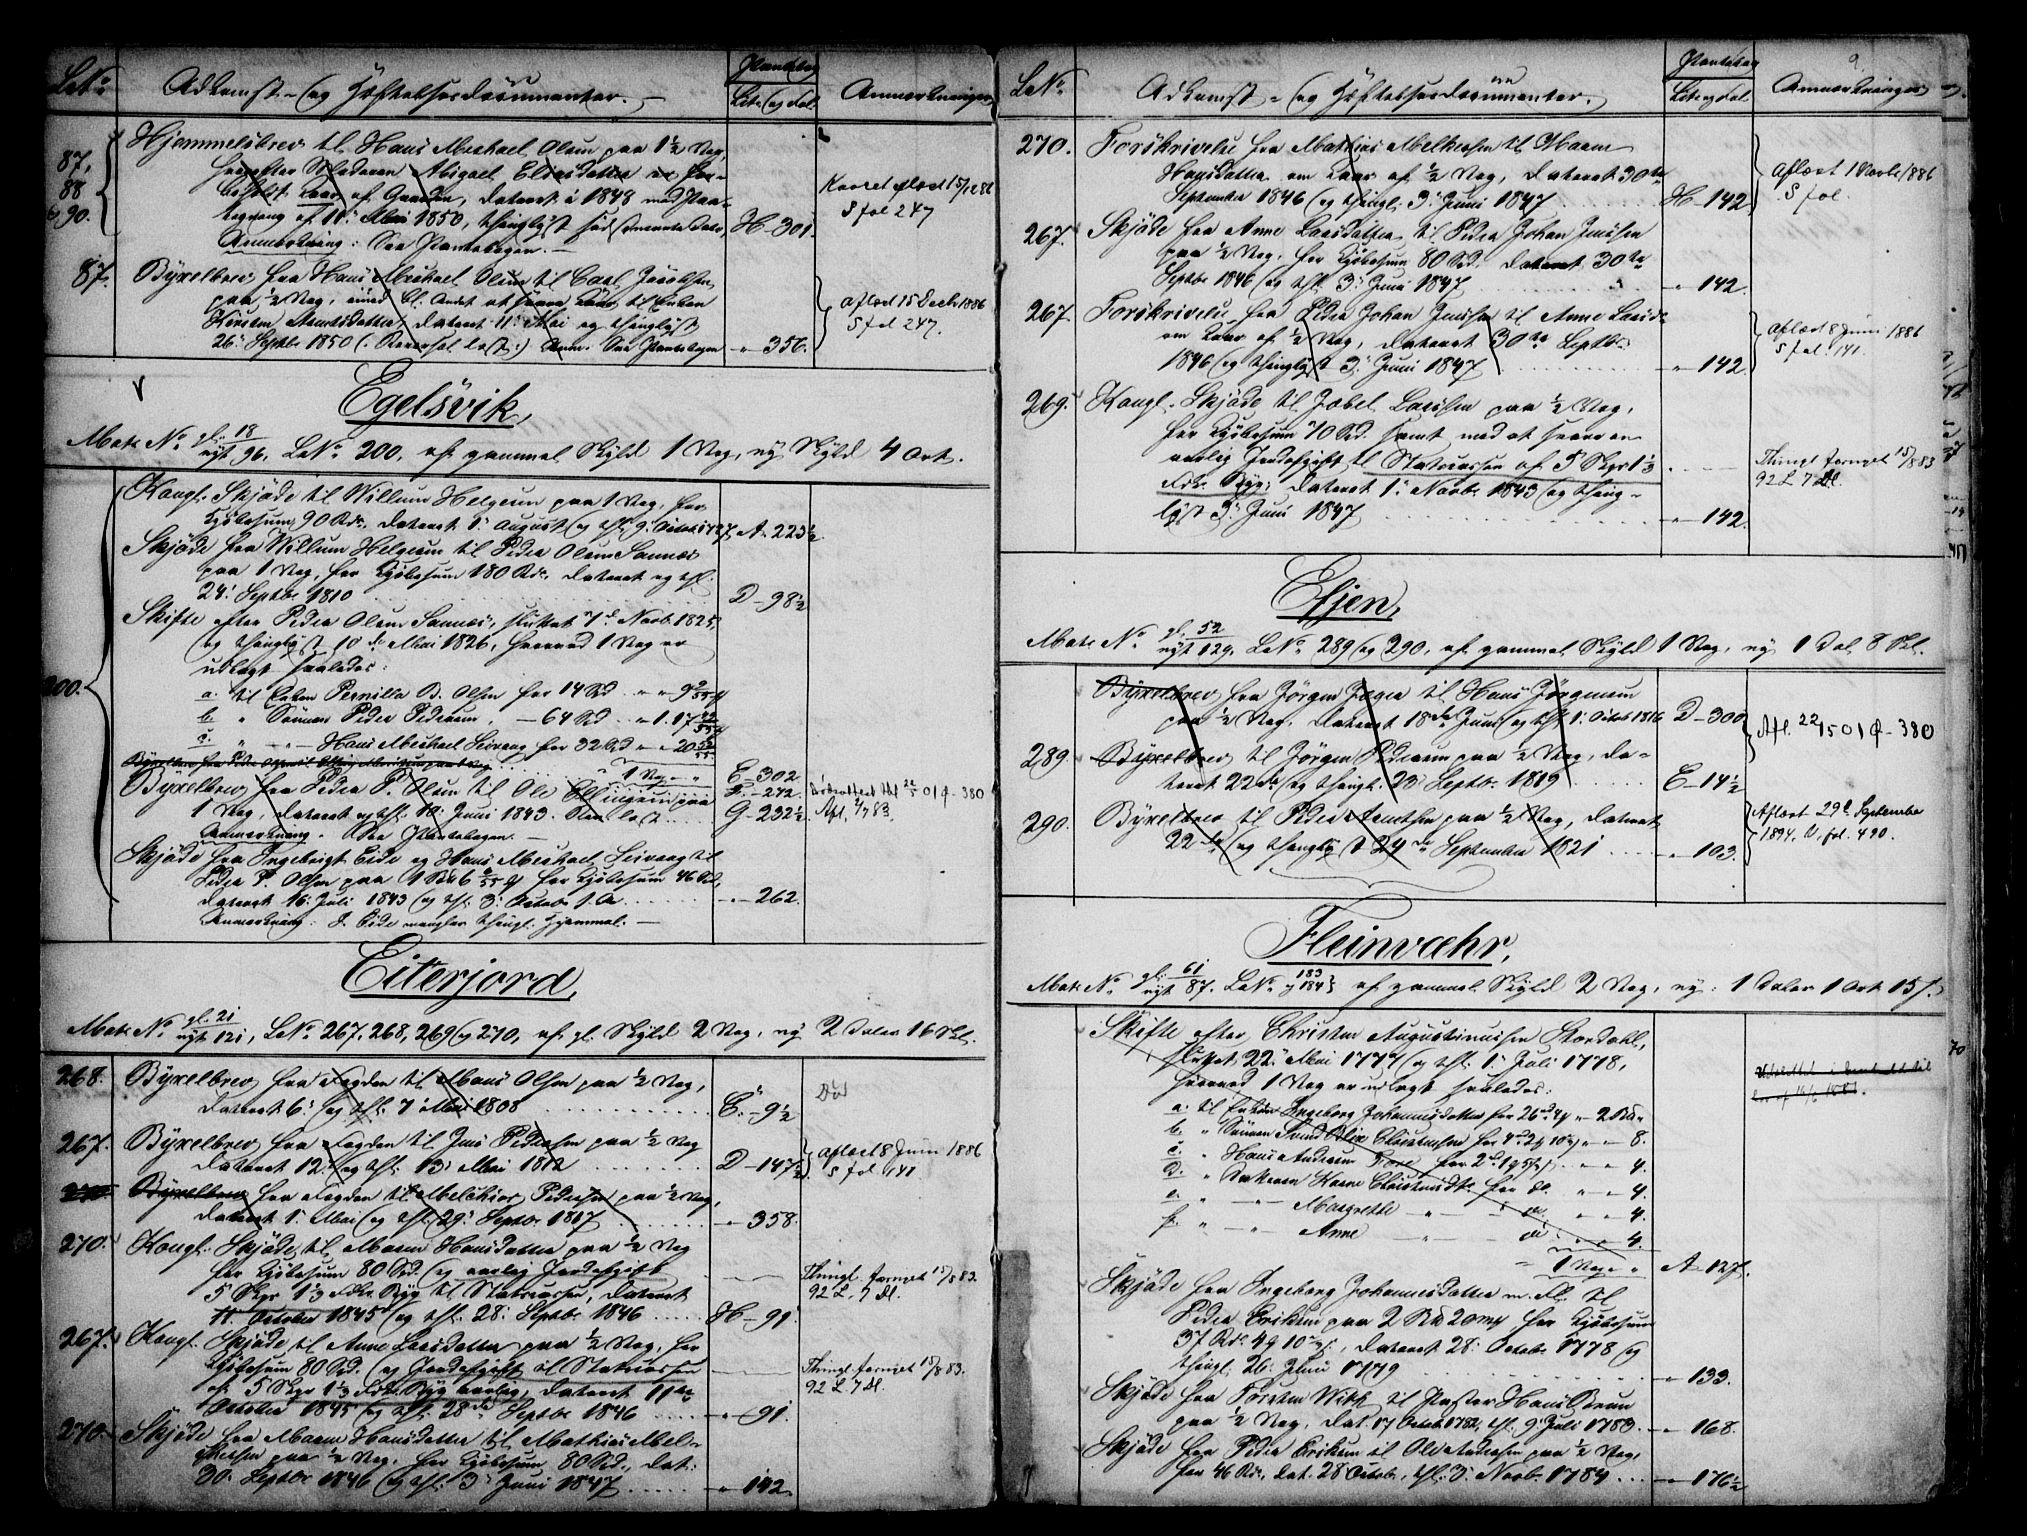 LeNo Adkomst- og Hæftelsesdocumenter. Pantebog Lit. og Fol. Anmærkninger
87, 88 og 90. Hjemmelsbrev til Hans Michael Olsen paa 1½ Vog,
hvorefter Stedmoderen Abigael Eliasdatter er for-
beholdt Kaar af Gaarden, dateret i 1848 med Paa-
tegning af 11 Mai 1850, thinglyst sidstnævnte Dato, H-301.
Anmærkning: See Pantebogen.
Kaaret aflæst 15/12 86
S fol 247
87. Byxelbrev fra Hans Michael Olsen til Carl Jacobsen
paa ½ Vog, imod bl. Andet at svare Kaar til Enken
Kirsten Arntsdatter, dateret 11 Mai og thinglyst
26 Septbr 1850 (Reversal læst.) Anm. See Pantebogen " 356.
aflæst 15 Decbr 1886
S fol 247.
Egelsvik,
Matr. No gl. 18
nyt 96, LeNo 200, af gammel Skyld 1 Vog, ny Skyld 4 Ort.
200. Kongl. Skjøde til Willum Helgesen paa 1 Vog, for
Kjøbesum 90 Rdr, dateret 1 August og thl. 9 Octob 1727 A. 223½
Skjøde fra Willum Helgesen til Peder Olsen Sannæs
paa 1 Vog, for Kjøbesum 180 Rdr, dateret og thl.
24 Septbr 1810 D-98½
Skifte efter Peder Olsen Sannæs, sluttet 7d Novb. 1825,
og thinglyst 10de Mai 1826, hvorved 1 Vog er
udlagt saaledes:
a. til Enken Pernilla B. Olsen for 14 Sd
b. " Sønnen Peder Pedersen, - 64 Sd
c. " - Hans Michael Leivang for 32 Sd
1 Vog " " E-302
Byxelbrev fra Peder P. Olsen til Ole Ellingsen paa
1 Vog, dateret og thl. 10 Juni 1843. Rev. læst G-232½
Afl. 83
Anmærkning. See Pantebogen.
Skjøde fra Ingebrigt Eide og Hans Michael Leivang til
Peder P. Olsen paa 1 for Kjøbesum 46 Sd,
dateret 16 Juli 1843 og thl. 3 Octobr s. A. " 262.
Anmærkning: I. Eide mangler thingl. Hjemmel.
Eiterjord,
Matr. No gl. 21
nyt 121, LeNo 267, 268, 269 og 270, af gl. Skyld 2 Vog, ny 2 Daler 16 Skl.
268. Byxelbrev fra Fogden til Hans Olsen paa ½ Vog,
dateret 6 og thl. 7 Mai 1808 C.-9½
Død
267. Byxelbrev fra Fogden til Jens Pedersen paa ½ Vog
dateret 12 og thl. 13 Mai 1812 D-147½
aflæst 8 Juni 1886
S fol 141
270 Byxelbrev fra Fogden til Melchior Pedersen paa ½ Vog,
dateret 1 Mai og thl. 29 Septbr 1817 " 358.
270. Kongl. Skjøde til Maren Hansdatter paa ½ Vog
for Kjøbesum 80 Sd. og aarlig Jordafgift
5 Skpr 1⅓ Fdk. Byg til Statscassen, dateret
11 October 1845 og thl. 28 Septbr 1846 H-91.
Thingl. fornyet 15/8 83.
92 L. 7 Dl.
267. Kongl. Skjøde til Anne Larsdatter paa ½ Vog, for
Kjøbesum 80 Sd. og Jordafgift til Statscassen
af 5 Skpr 1⅓ Fdk. Byg aarlig, dateret 11te
October 1845 og thl. 28de Septbr 1846 " 91.
Thingl. fornyet 15/8 83.
92 L 7 Dl.
270. Skjøde fra Maren Hansdatter til Mathias Mel-
chersen paa ½ Vog, for Kjøbesum 80 Sd., dat.
30 Septbr 1846 og thl. 3 Juni 1847 " 142.
9.
LeNo Adkomst- og Hæftelsesdocumenter. Pantebog Litr og Fol. Anmærkninger
270. Forskrivelse fra Mathias Melkersen til Maren
Hansdatter om Kaar af ½ Vog, dateret 30te
September 1846 og thingl. 3 Juni 1847 H-142
Aflæst 1 Novbr 1886
S fol.
267. Skjøde fra Anne Larsdatter til Peder Johan Jensen
paa ½ Vog, for Kjøbesum 80 Sd, dateret 30te
Septbr 1846 og thl. 3 Juni 1847 " 142.
267. Forskrivelse fra Peder Johan Jensen til Anne Larsd.
om Kaar af ½ Vog, dateret 30te Septbr
1846 og thinglyst 3 Juni 1847 " 142
aflæst 8 Juni 1886
S fol. 141.
269. Kongl. Skjøde til Zobel Larssen paa ½ Vog,
for Kjøbesum 70 Sd. samt mod at svare en
aarlig Jordafgift til Statscassen af 5 Skpr 1⅓
Fdk. Byg, dateret 1 Novbr 1843 og thing-
lyst 3 Juni 1847 " 142.
Thingl fornyet 15/8 83
92 L 7 Dl.
Eljen,
Matr No gl. 52
nyt 129, LeNo 289 og 290, af gammel Skyld 1 Vog, ny 1 Dal 8 Skl.
289 Byxelbrev fra Jørgen Jæger til Hans Jørgensen
paa ½ Vog, dateret 18de Juni og thl. 1 Octob 1816 D-300
Byxelbrev til Jørgen Pedersen paa ½ Vog, da-
teret 22de og thingl. 23 Septbr 1819 E-14½
290. Byxelbrev til Peder Arntsen paa ½ Vog, dateret
22de og thinglyst 24de September 1821 " 103.
Aflæst 29d September
1894. V. fol. 490.
Fleinvæhr,
Matr No gl. 61
nyt 87. LeNo 183 og 184 af gammel Skyld 2 Vog, ny: 1 Daler 1 Ort 15 s.
Skifte efter Christen Augustinussen Stordahl,
sluttet 22 Mai 1777 og thl. 1 Juli 1778,
hvorved 1 Vog er udlagt saaledes:
a. til Enken Ingeborg Johannesdatter for 26
b. " Sønnen Christensen for " 8.
c. " Hans Andersen " 4.
d. " Datteren Karen Christensdtr. for do. " 4.
e. " - Margrethe - " do. " 4.
f. " - Anne - " do " 4.
1 Vog " " A-127.
Skjøde fra Ingeborg Johannesdatter m. Fl. til
Peder Eriksen paa 2 for Kjøbesum
37 Rdr. dateret 28 Octobr 1778 og
thingl. 26 Juni 1779 " 133.
Skjøde fra Torsten Witk til Pastor Hans Brun
paa ½ Vog, dat. 17 Octob 1782, thl. 9 Juli 1783 " 168.
Skjøde fra Peder Eriksen til Ole Andersen paa ½ Vog,
for 46 Rdr, dat. 28 Octob, thl. 3 Novb. 1784 " 176½